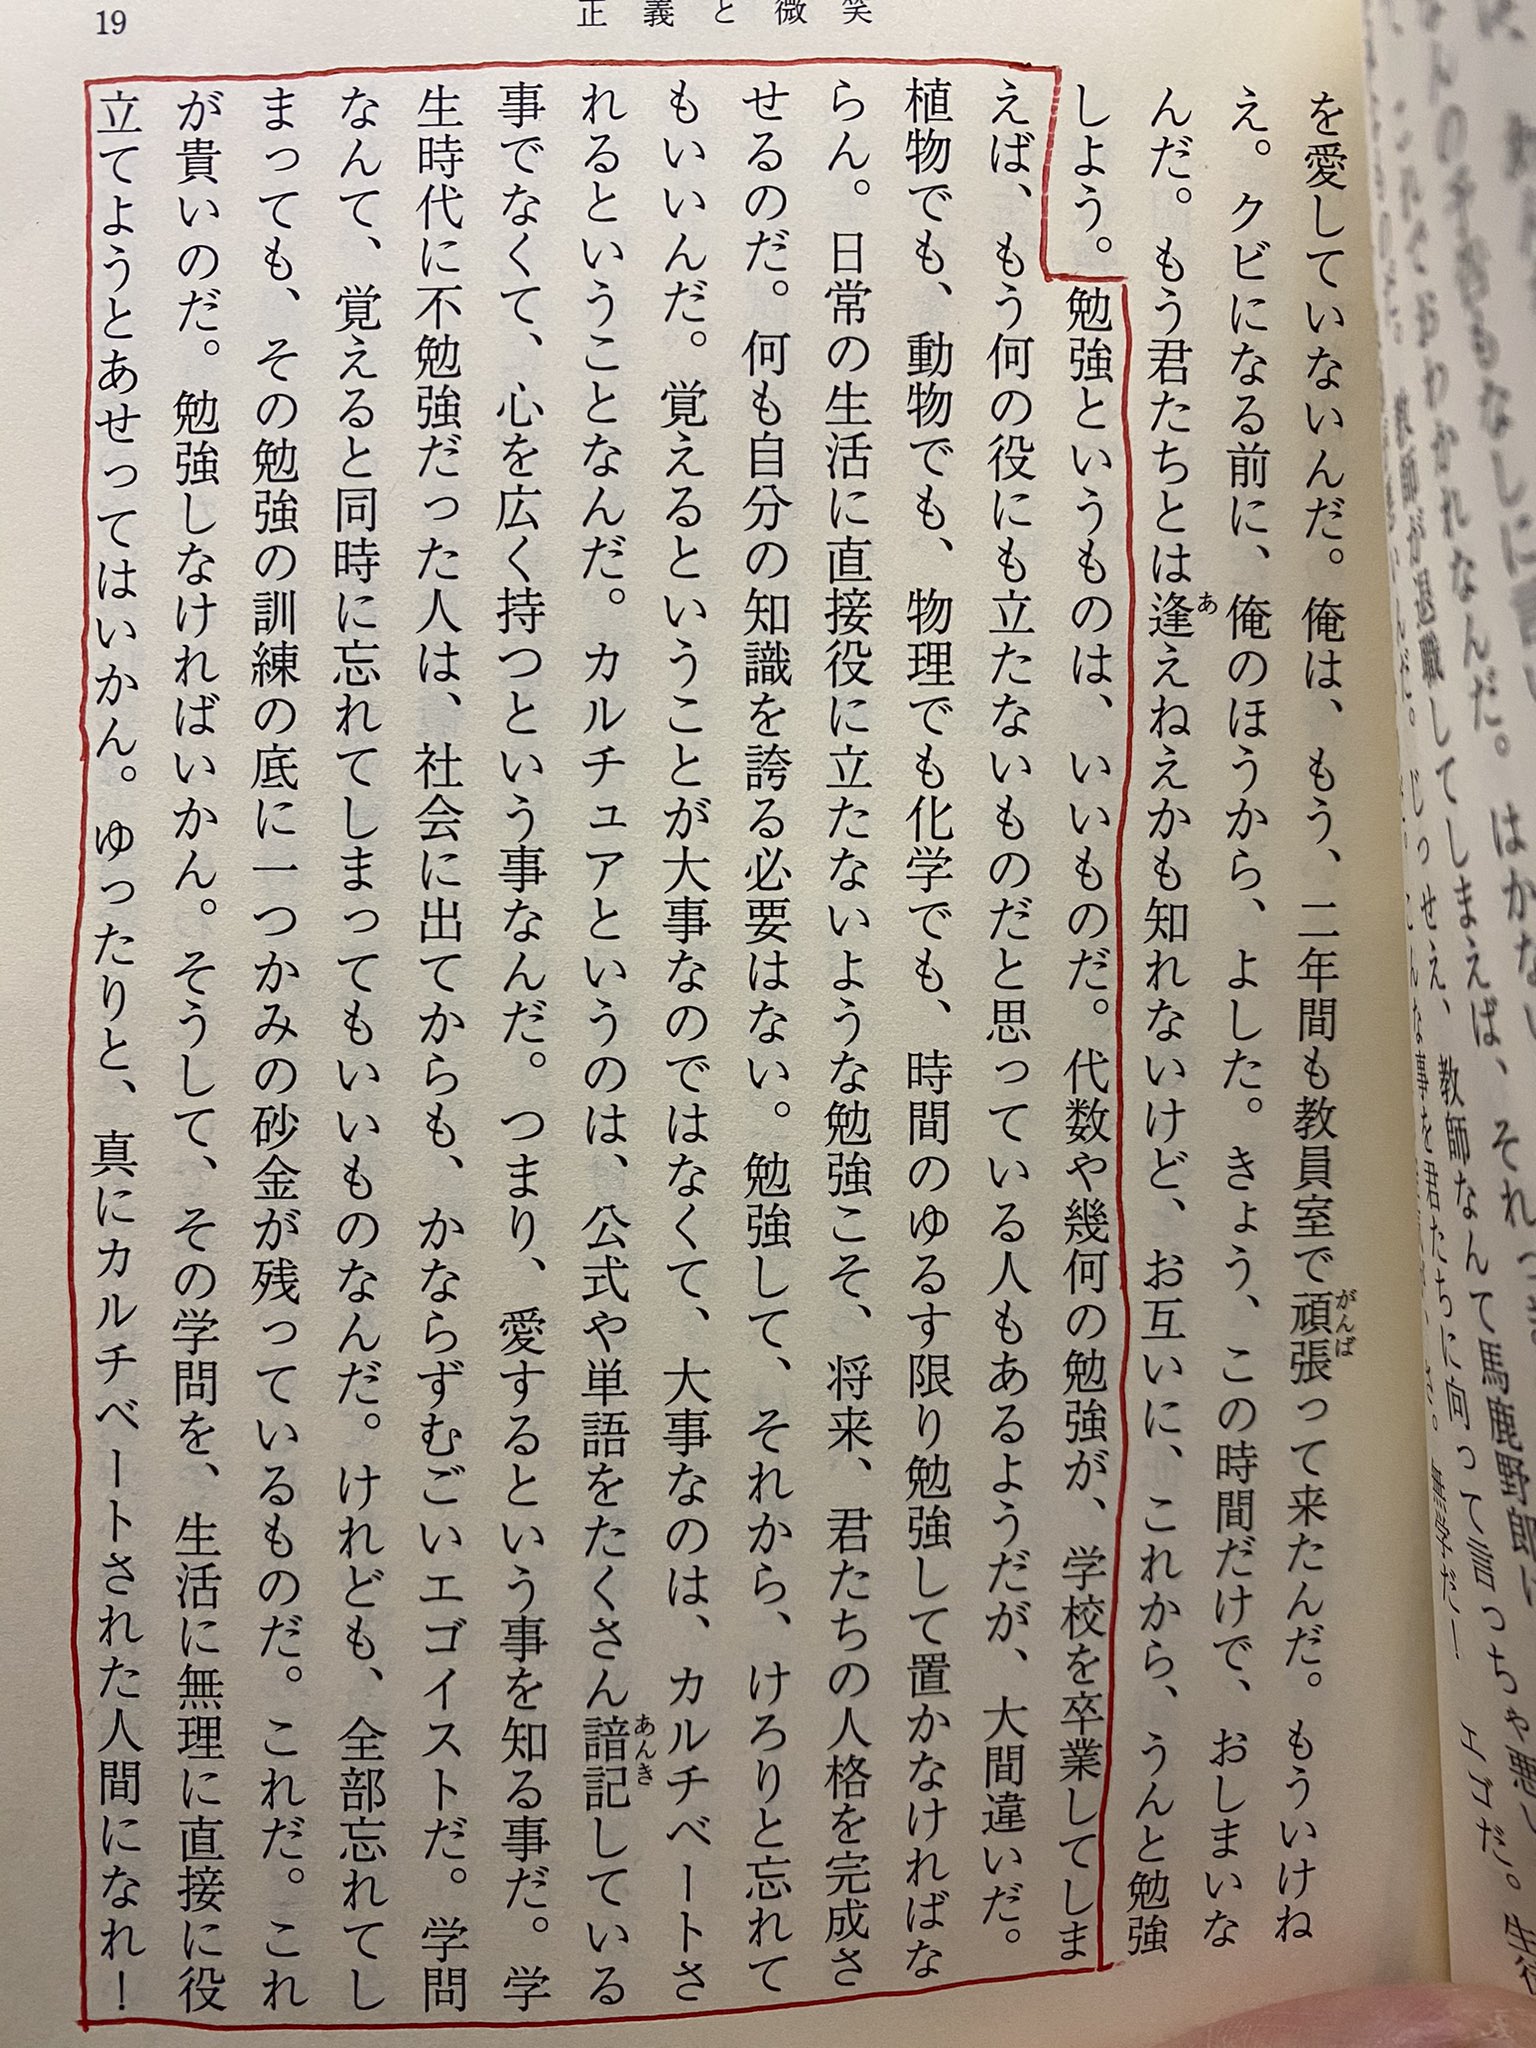 19
正義と微笑
を愛していないんだ。俺は、もう、二年間も教員室で頑張って来たんだ。もういけね
がんば
え。クビになる前に、俺のほうから、よした。きょう、この時間だけで、おしまいな
んだ。もう君たちとは逢えねえかも知れないけど、お互いに、これから、うんと勉強
あ
しよう。勉強というものは、いいものだ。代数や幾何の勉強が、学校を卒業してしま
えば、もう何の役にも立たないものだと思っている人もあるようだが、大間違いだ。
植物でも、動物でも、物理でも化学でも、時間のゆるす限り勉強して置かなければな
らん。日常の生活に直接役に立たないような勉強こそ、将来、君たちの人格を完成さ
せるのだ。何も自分の知識を誇る必要はない。勉強して、それから、けろりと忘れて
もいいんだ。覚えるということが大事なのではなくて、大事なのは、カルチベートさ
れるということなんだ。カルチュアというのは、公式や単語をたくさん諳記している
あんき
事でなくて、心を広く持つという事なんだ。つまり、愛するという事を知る事だ。学
生時代に不勉強だった人は、社会に出てからも、かならずむごいエゴイストだ。学問
なんて、覚えると同時に忘れてしまってもいいものなんだ。けれども、全部忘れてし
まっても、その勉強の訓練の底に一つかみの砂金が残っているものだ。これだ。これ
が貴いのだ。勉強しなければいかん。そうして、その学問を、生活に無理に直接に役
立てようとあせってはいかん。ゆったりと、真にカルチベートされた人間になれ！